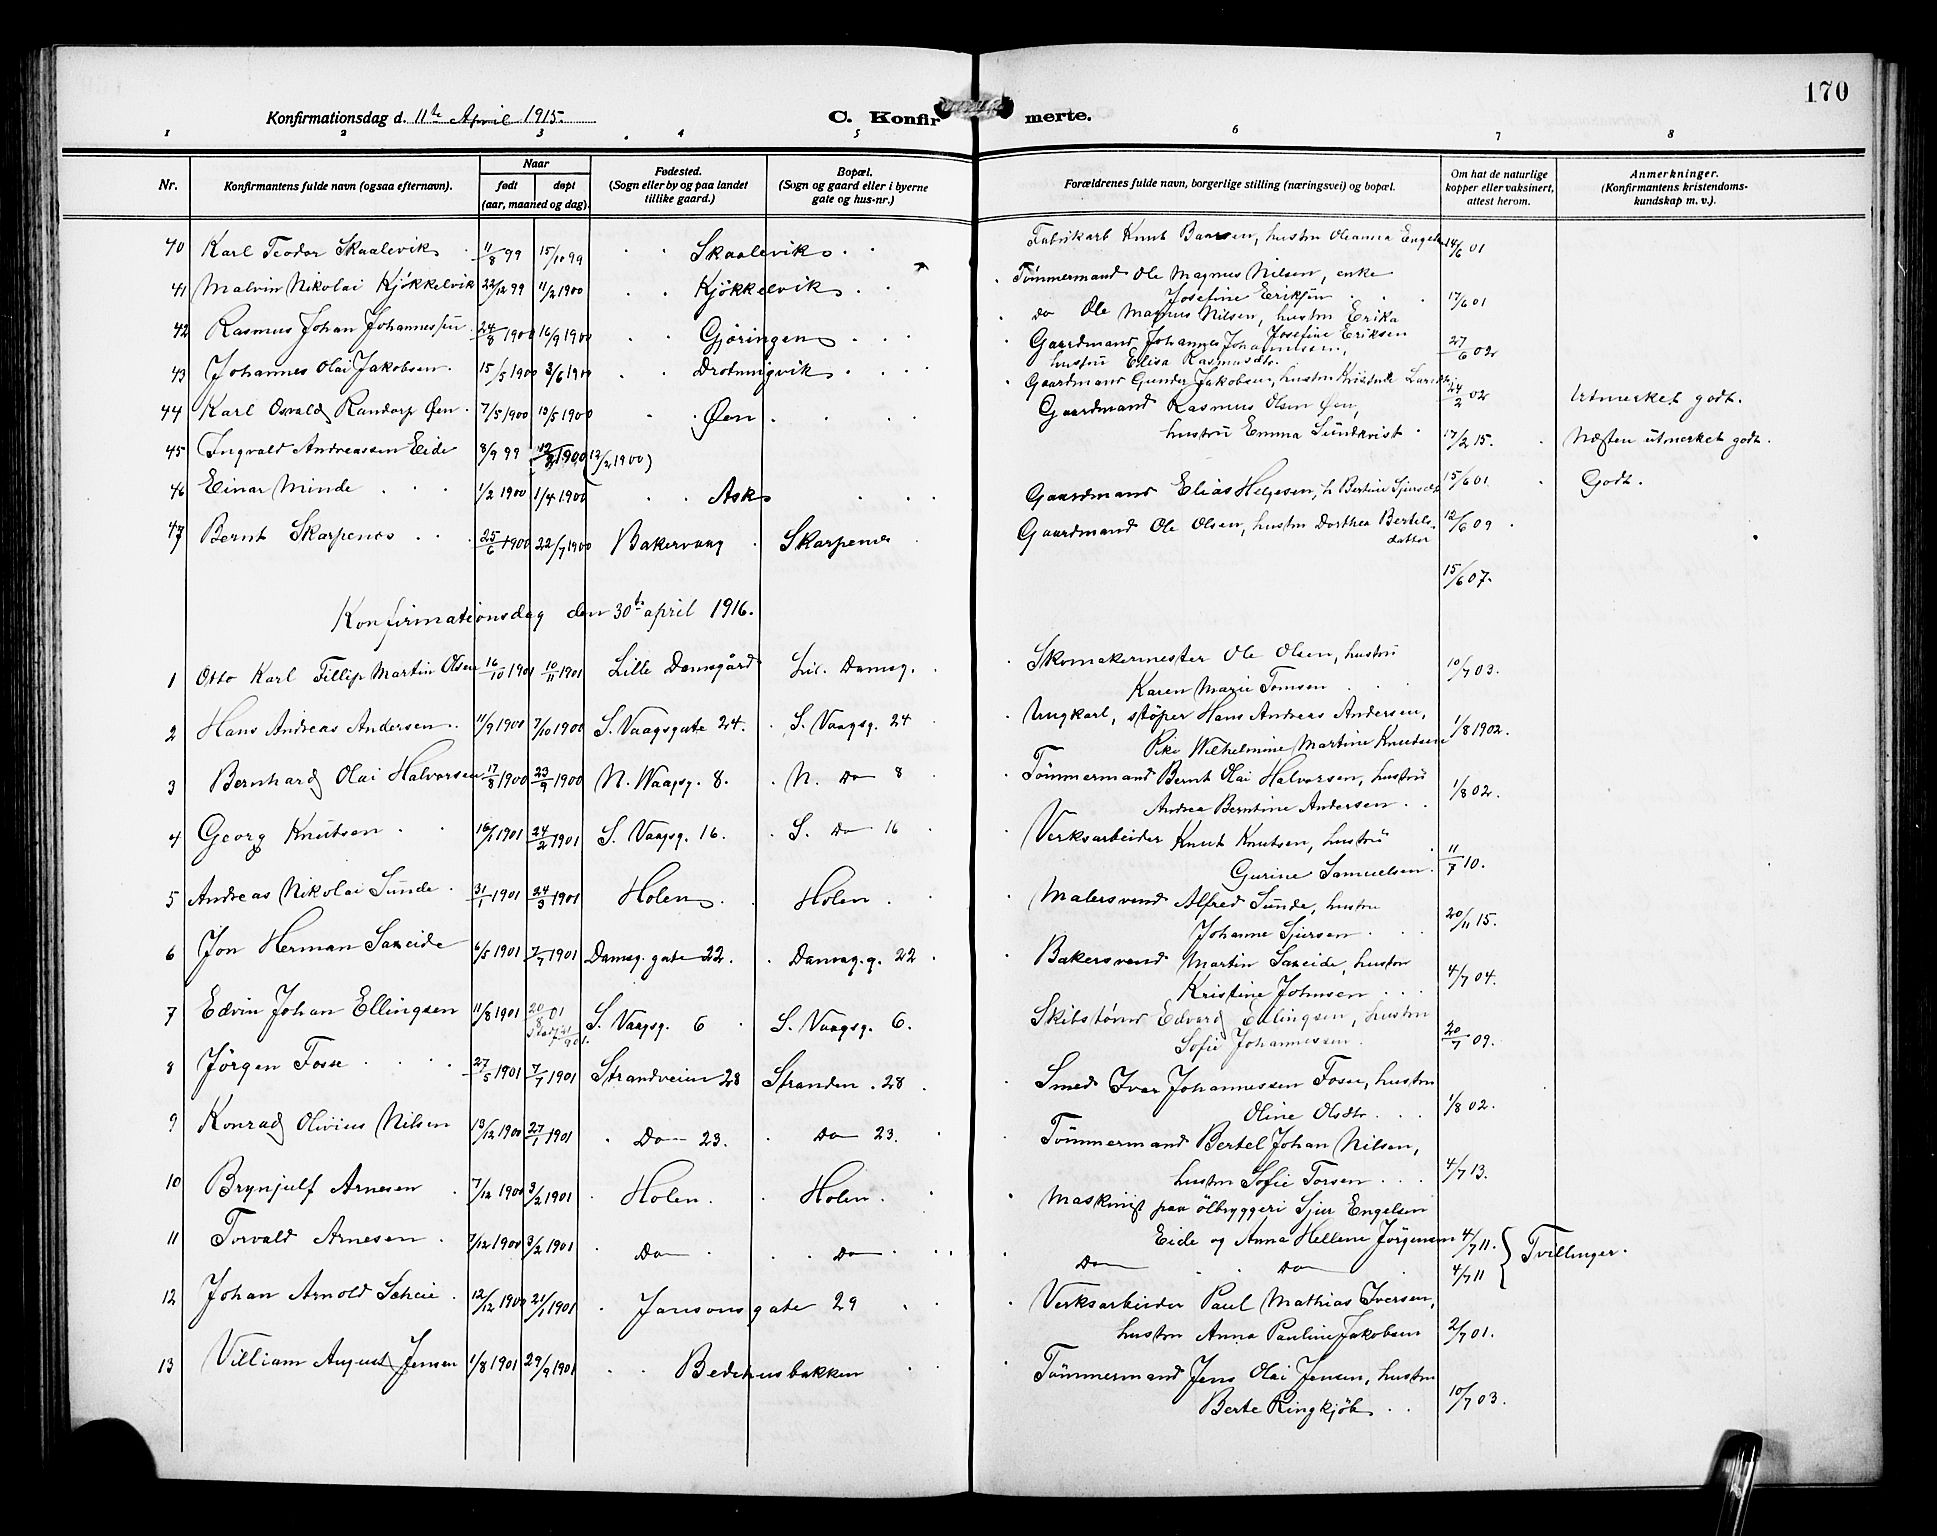 170
Konfirmationsdag d. 11te April 1915.
C. Konfirmerte.
1 2 3 4 5 6 7 8
Nr.
Konfirmantens fulde navn (ogsaa efternavn).
Naar
født døpt
(aar, maaned og dag).
Fødested.
(Sogn eller by og paa landet
tillike gaard.)
Bopæl.
(Sogn og gaard eller i byerne
gate og hus-nr.)
Forældrenes fulde navn, borgerlige stilling (næringsvei) og bopæl.
Om hat de naturlige
kopper eller vaksinert,
attest herom.
Anmerkninger.
(Konfirmantens kristendoms-
kundskap m. v.).
40 Karl Teodor Skaalevik 11/8 99 15/10 99 Skaalevik Fabrikarb Knut Baarsen, hustru Oleanna Engels 14/6 01
41 Malvin Nikolai Kjökkelvik 22/12 99 11/2 1900 Kjökkelvik Tömmermand Ole Magnus Nilsen, enke
Josefine Eriksen 17/6 01
do Ole Magnus Nilsen, hustru Erika
Josefine Eriksen
42 Rasmus Johan Johannessen 24/8 1900 16/9 1900 Gjøringen Gaardmand Johannes Johannessen, 27/6 02
hustru Elisa Rasmusdtr.
43 Johannes Olai Jakobsen 15/5 1900 3/6 1900 Drotningvik Gaardmand Gunder Jakobsen, hustru Kristine 24/2 02 Utmerket godt.
44 Karl Osvald Randorp Øen 7/5 1900 13/5 1900 Øen Gaardmand Rasmus Olsen Øen,
hustru Emma Sundkvist 17/2 15. Næsten utmerket godt.
45 Ingvald Andreassen Eide 8/9 99 12/2 1900 (12/2 1900)
46 Einar Minde 1/2 1900 1/4 1900 Ask Gaardmand Elias Helgesen, h. Bertine Sjursdtr 15/6 01 Godt.
47 Bernt Skarpenes 25/6 1900 22/7 1900 Bakervaag Skarpenes Gaardmand Ole Olsen, hustru Dorthea Bertels- 12/6 09
datter
15/6 07.
Konfirmationsdag den 30te april 1916.
1 Otto Karl Fillip Martin Olsen 16/10 1901 10/11 1901 Lille Damsgård Lil. Damsg. Skomakermester Ole Olsen, hustru
Karen Marie Tomsen 10/7 03.
2 Hans Andreas Andersen 11/9 1900 7/10 1900 S. Vaagsgate 24. S. Vaagsg. 24 Ungkarl, støper Hans Andreas Andersen,
Pike Wilhelmine Martine Knudsen 1/8 1902.
3 Bernhard Olai Halvorsen 17/8 1900 23/9 1900 N. Waagsg. 8. N. Do 8 Tömmermand Bernt Olai Halvorsen, hustru
Andrea Berntine Andersen 1/8 02.
4 Georg Knutsen 16/1 1901 24/2 1901 S. Vaagsg. 16. S. Do 16 Verksarbeider Knut Knutsen, hustru
Gurine Samuelsen 11/7 10.
5 Andreas Nikolai Sunde 31/1 1901 24/3 1901 Holen Holen Malersvend Alfred Sunde, hustru
Johanne Sjursen 20/11 15.
6 Jon Herman Saxeide 6/5 1901 7/7 1901 Damsg. gate 22. Damsg. g. 22 Bakersvend Martin Saxeide, hustru
Kristine Johnsen 4/7 04.
7 Edvin Johan Ellingsen 11/8 1901 20/8 01 S. Vaagsg. 6 S. Vaagsg. 6. Skibstömr Edvard Ellingsen, hustru
Sofie Johannessen 20/7 09.
8 Jörgen Fosse 27/5 1901 7/7 1901 Strandveien 28 Stranden. 28 Smed Ivar Johannessen Fosse, hustru
Oline Olsdtr 1/8 02.
9 Konrad Olivius Nilsen 13/12 1900 27/1 1901 Do 23. Do 23. Tömmermand Bertel Johan Nilsen,
hustru Sofie Torsen 4/7 13.
10 Brynjulf Arnesen 7/12 1900 3/2 1901 Holen. Holen. Maskinist paa ölbryggeri Sjur Engelsen
Eide og Anna Hellene Jörgensen 4/7 11.
11 Torvald Arnesen 7/12 1900 3/2 1901 Do Do Do Do 4/7 11 } Tvillinger.
12 Johan Arnold Scheie 12/12 1900 21/1 1901 Jansonsgate 29 Verksarbeider Paul Mathias Iversen,
hustru Anna Pauline Jakobsen 2/7 01.
13 Villiam August Jensen 1/8 1901 29/9 1901 Bedehusbakken Tömmermand Jens Olai Jensen, hustru
Berte Ringkjöb 10/7 03.